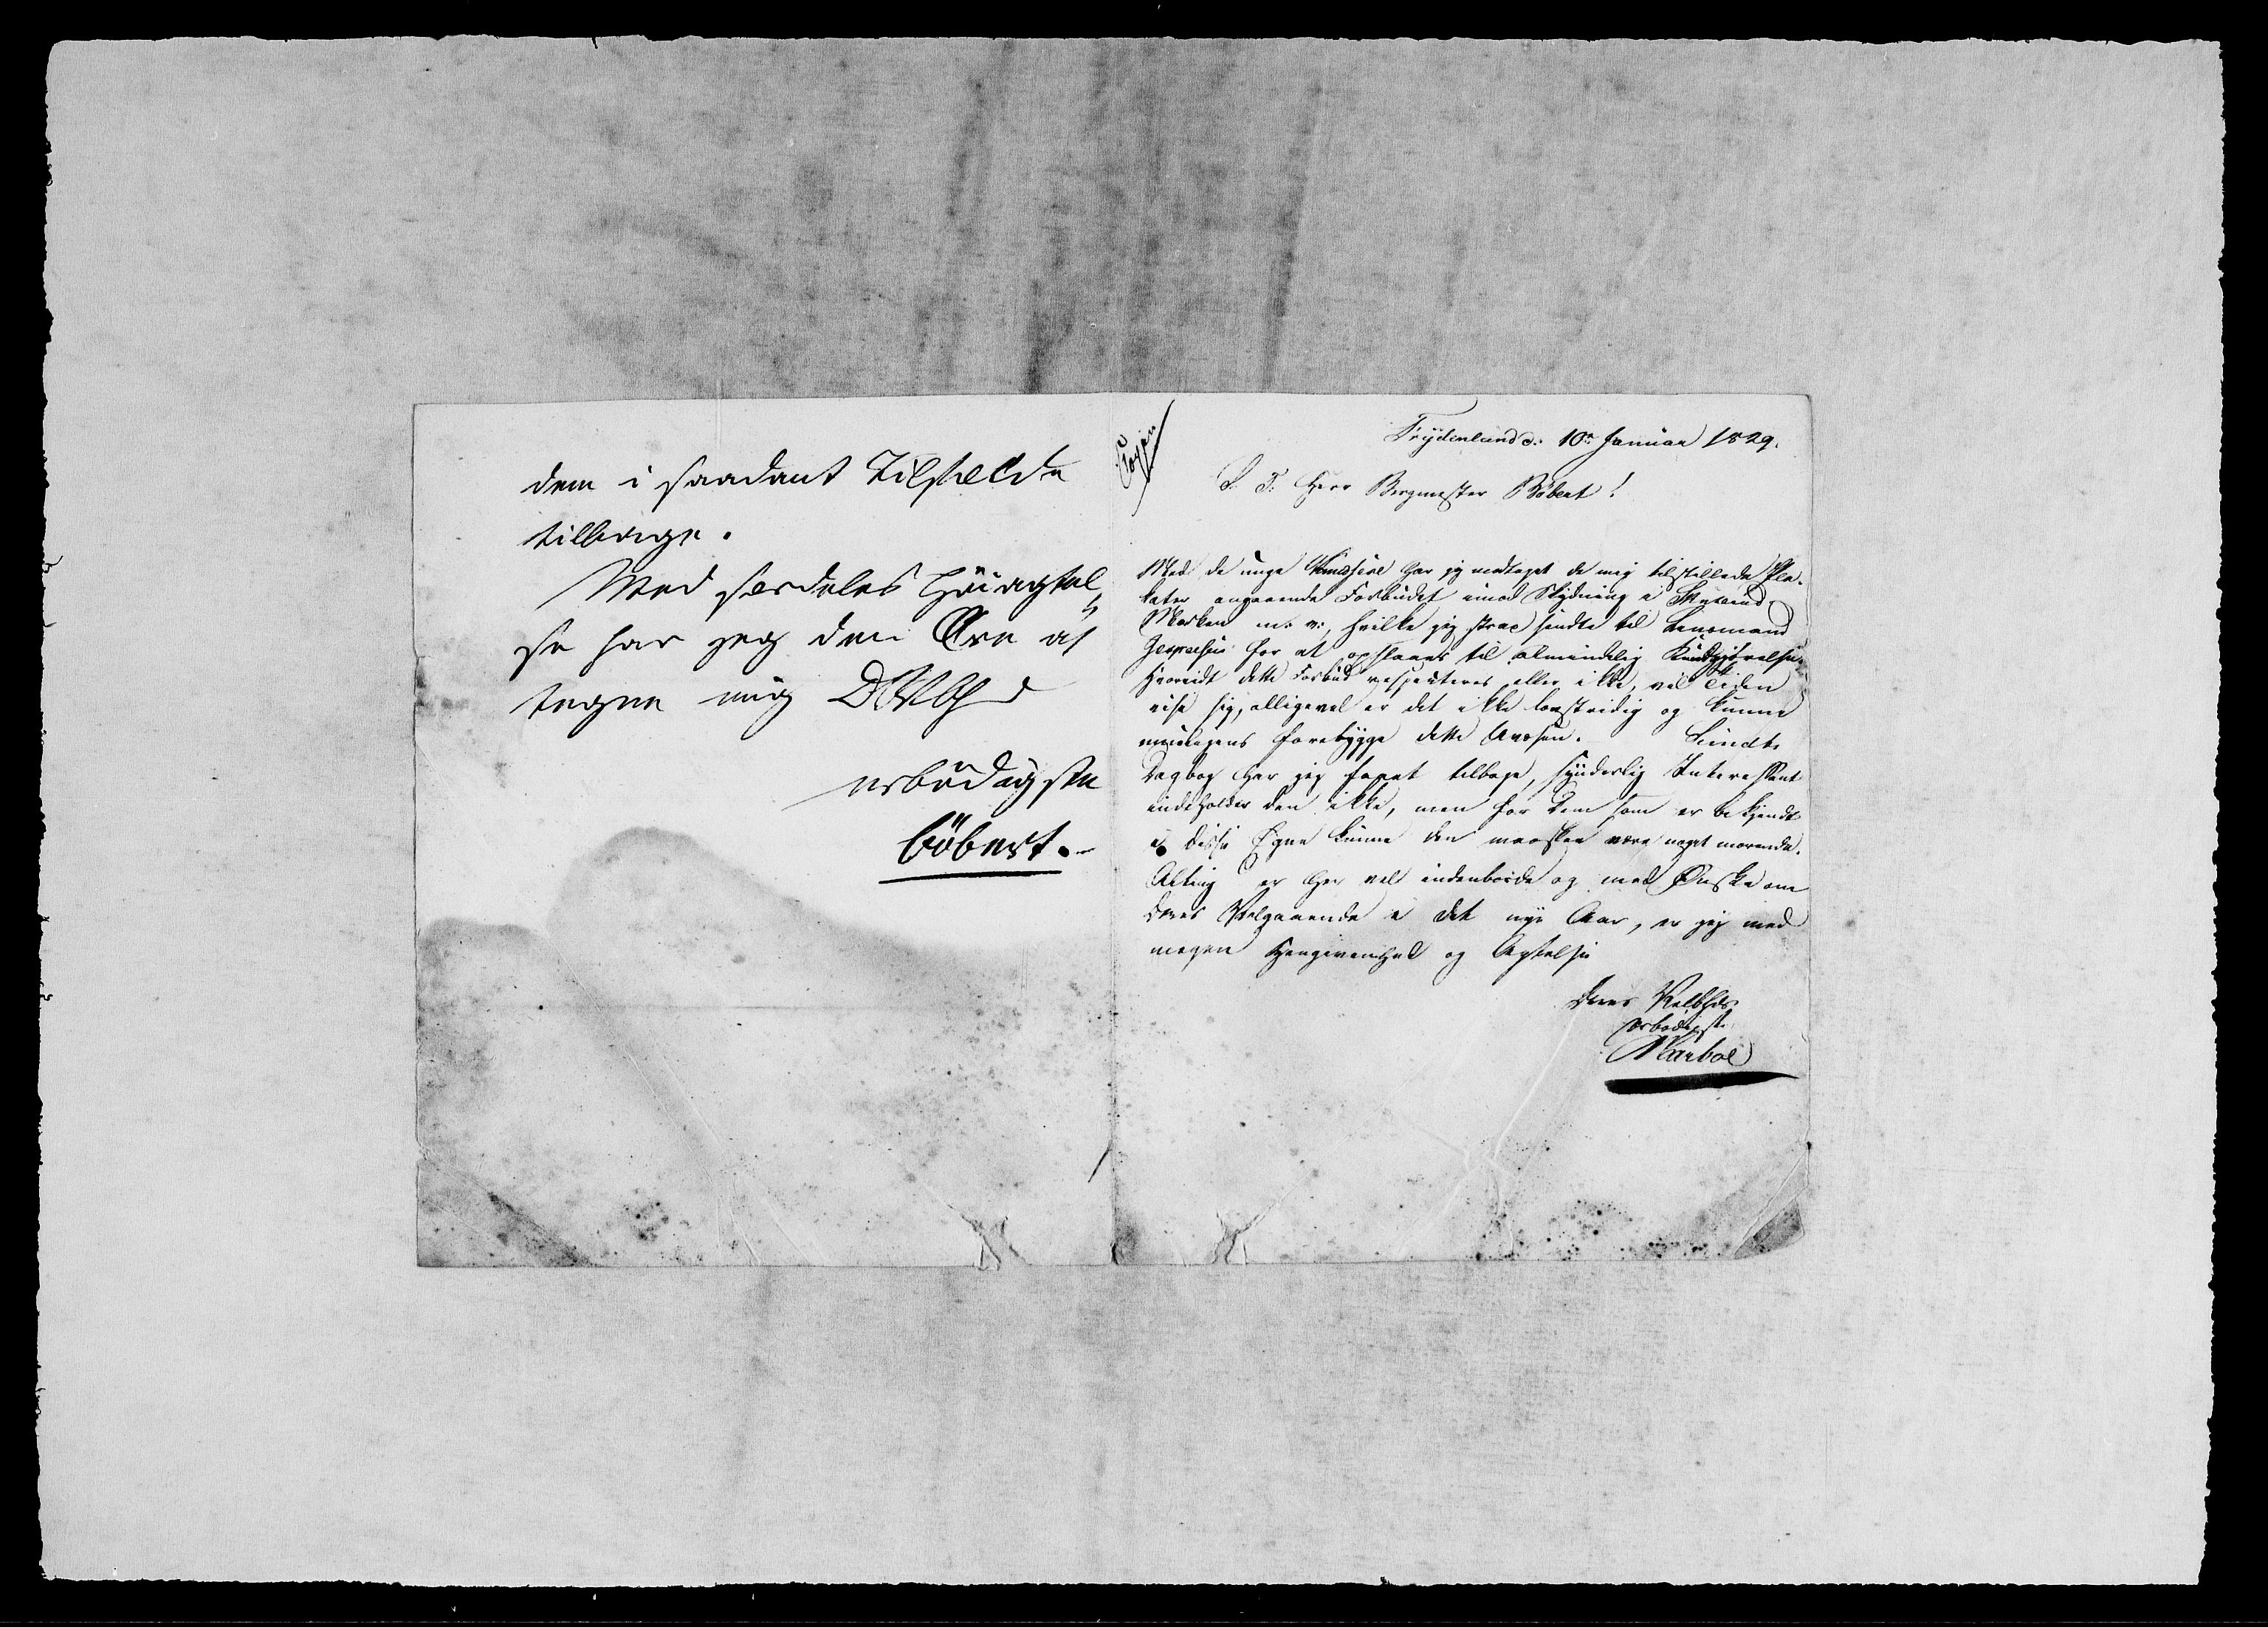 dem i saadant Tilfælde
tilbringe.
Med særdeles Höiagtel,
se har jeg den Ære at
tegne mig DVbh
erbödigste
Böbert.
Copie
Frydenlund d: 10de Januar 1829.
S. T. Herr Bergmester Böbert!
Med de unge har jeg modtaget de mig tilstillede Pla-
kater angaaende Forbudet imod Skydning i
Marken m. v:, hvilke jeg strax sendte til Lensmand
Jespersen for at opslaaes til almindelig Kundgjørelse.
Hvorvidt dette Forbud respecteres eller ikke, vil Tiden
vise sig, alligevel er det ikke lovstridig og kunne
muligens forebygge dette Uvæsen. Lundts
Dagbog har jeg faaet tilbage, synderlig Interessant
indeholder den ikke, men for Dem som er bekjendt
i disse Egne kunne den maaskee være noget morende.
Alting er her vel indenborde og med Ønske om
deres Velgaaende i det nye Aar, er jeg med
megen Hengivenhed og Agtelse
deres Velbhds
ærbødigste
Morboe